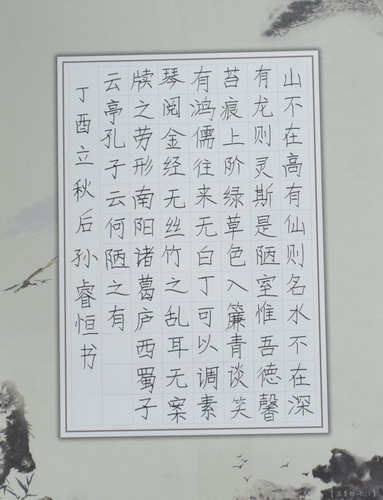 山不在高有仙则名水不在深
有龙则灵斯是陋室惟吾德馨
苔痕上阶绿草色入簾青谈笑
有鸿儒往来无白丁可以调素
琴阅金经无丝竹之乱耳无案
牍之劳形南阳诸葛庐西蜀子
云亭孔子云何陋之有
丁酉立秋后孙睿恒书